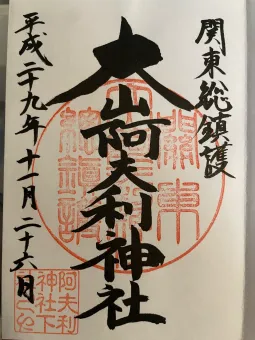 関東総鎮護
大山阿夫利神社
平成二十九年十一月二十六日
阿夫利
神社下